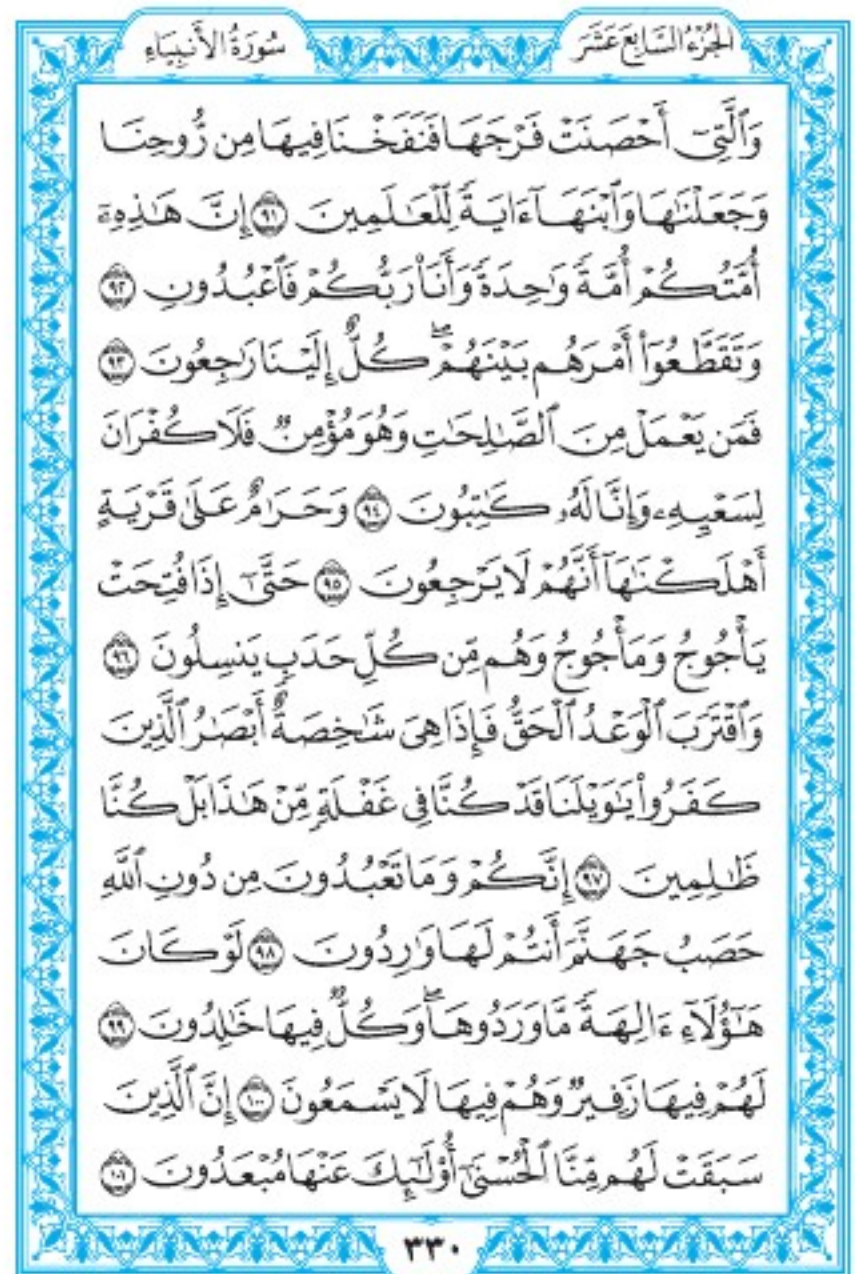 الجُزْءُ السَّابِعَ عَشَرَ
سُورَةُ الأَنبِيَاءِ
وَٱلَّتِىٓ أَحۡصَنَتۡ فَرۡجَهَا فَنَفَخۡنَا فِيهَا مِن رُّوحِنَا
وَجَعَلۡنَٰهَا وَٱبۡنَهَآ ءَايَةٗ لِّلۡعَٰلَمِينَ ٩١ إِنَّ هَٰذِهِۦٓ
أُمَّتُكُمۡ أُمَّةٗ وَٰحِدَةٗ وَأَنَا۠ رَبُّكُمۡ فَٱعۡبُدُونِ ٩٢
وَتَقَطَّعُوٓاْ أَمۡرَهُم بَيۡنَهُمۡۖ كُلٌّ إِلَيۡنَا رَٰجِعُونَ ٩٣
فَمَن يَعۡمَلۡ مِنَ ٱلصَّٰلِحَٰتِ وَهُوَ مُؤۡمِنٞ فَلَا كُفۡرَانَ
لِسَعۡيِهِۦ وَإِنَّا لَهُۥ كَٰتِبُونَ ٩٤ وَحَرَٰمٌ عَلَىٰ قَرۡيَةٍ
أَهۡلَكۡنَٰهَآ أَنَّهُمۡ لَا يَرۡجِعُونَ ٩٥ حَتَّىٰٓ إِذَا فُتِحَتۡ
يَأۡجُوجُ وَمَأۡجُوجُ وَهُم مِّن كُلِّ حَدَبٖ يَنسِلُونَ ٩٦
وَٱقۡتَرَبَ ٱلۡوَعۡدُ ٱلۡحَقُّ فَإِذَا هِىَ شَٰخِصَةٌ أَبۡصَٰرُ ٱلَّذِينَ
كَفَرُواْ يَٰوَيۡلَنَا قَدۡ كُنَّا فِى غَفۡلَةٖ مِّنۡ هَٰذَا بَلۡ كُنَّا
ظَٰلِمِينَ ٩٧ إِنَّكُمۡ وَمَا تَعۡبُدُونَ مِن دُونِ ٱللَّهِ
حَصَبُ جَهَنَّمَ أَنتُمۡ لَهَا وَٰرِدُونَ ٩٨ لَوۡ كَانَ
هَٰٓؤُلَآءِ ءَالِهَةٗ مَّا وَرَدُوهَاۖ وَكُلّٞ فِيهَا خَٰلِدُونَ ٩٩
لَهُمۡ فِيهَا زَفِيرٞ وَهُمۡ فِيهَا لَا يَسۡمَعُونَ ١٠٠ إِنَّ ٱلَّذِينَ
سَبَقَتۡ لَهُم مِّنَّا ٱلۡحُسۡنَىٰٓ أُوْلَٰٓئِكَ عَنۡهَا مُبۡعَدُونَ ١٠١
٣٣٠